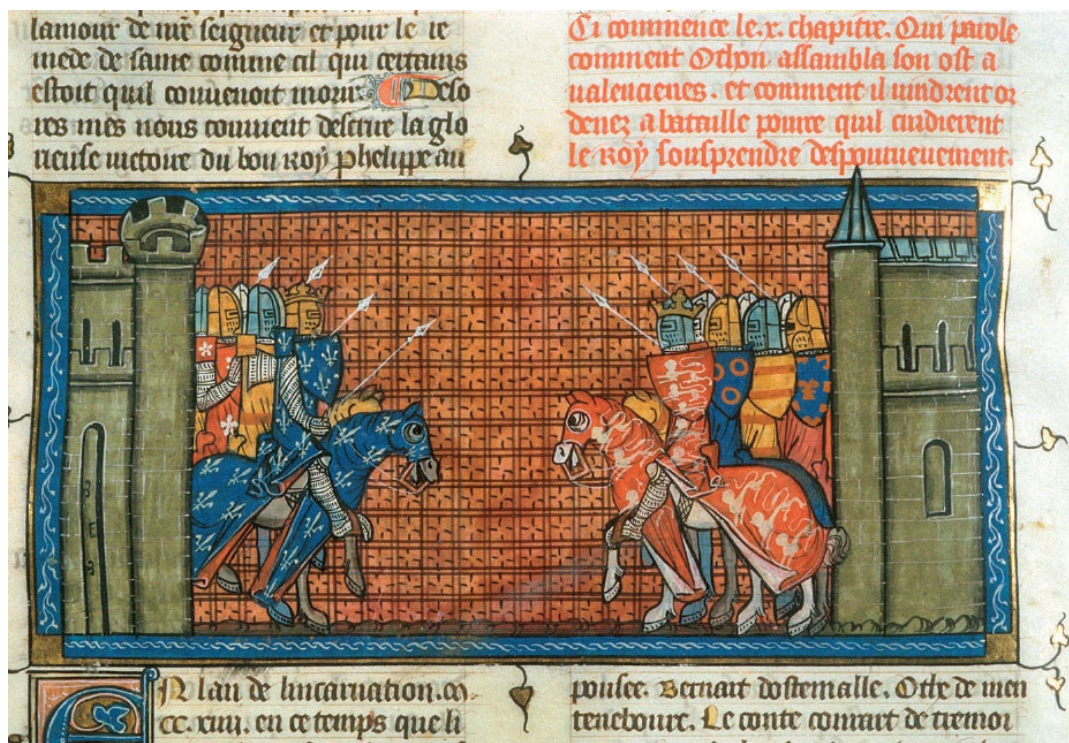 lamour de nr̄e seigneur et pour le re
mede de same comme cil qui certains
estoit quil couuenoit morir. Deso
res mes nous couuient descrire la glo
rieuse uictoire du bon roy phelippe au
Ci commence le .x. chapitre. Qui parole
comment Othon assambla son ost a
ualencienes. et comment il uindrent or
denez a bataille pource quil cuidierent
le roy sousprendre despourueuement.
EN lan de lincarnation .m.
cc. xiiii. en ce temps que li
ponsee. Bernart dostemalle. Othe de men
teneboure. Le conte conrart de tremoi